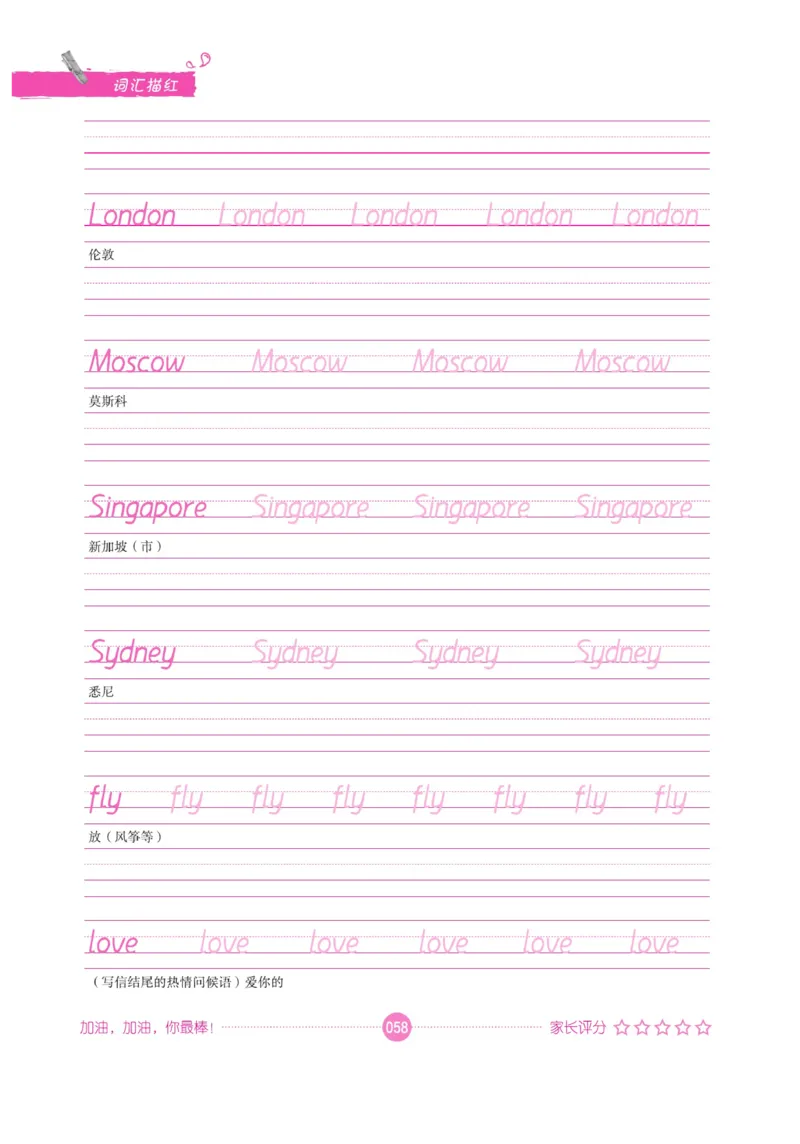 词汇描红
London London London London London
伦敦
Moscow Moscow Moscow Moscow
莫斯科
Singapore Singapore Singapore Singapore
新加坡（市）
Sydney Sydney Sydney Sydney
悉尼
fly fly fly fly fly fly fly fly
放（风筝等）
love love love love love love
（写信结尾的热情问候语）爱你的
加油，加油，你最棒！ 058 家长评分